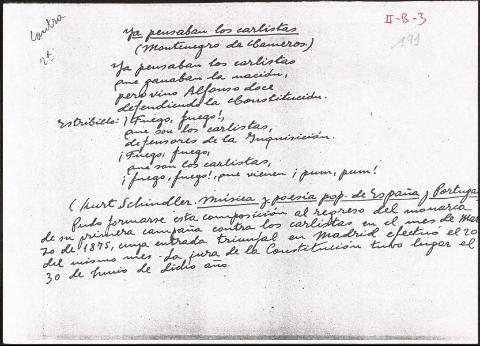 Contra
2ª
II-B-3
191
Ya pensaban los carlistas
(Montenegro de Cameros)
Ya pensaban los carlistas
que ganaban la nación,
pero vino Alfonso doce
defendiendo la Constitución.
Estribillo: ¡Fuego, fuego!,
que son los carlistas,
defensores de la Inquisición.
¡Fuego, fuego,
que son los carlistas,
¡fuego, fuego!, que vienen ¡pum, pum!
(Kurt Schindler. Música y poesía pop. de España y Portugal
Pudo formarse esta composición al regreso del monarca
de su primera campaña contra los carlistas en el mes de Mar
zo de 1875, cuya entrada triunfal en Madrid efectuó el 20
del mismo mes. La jura de la Constitución tubo lugar el
30 de Junio de dicho año.